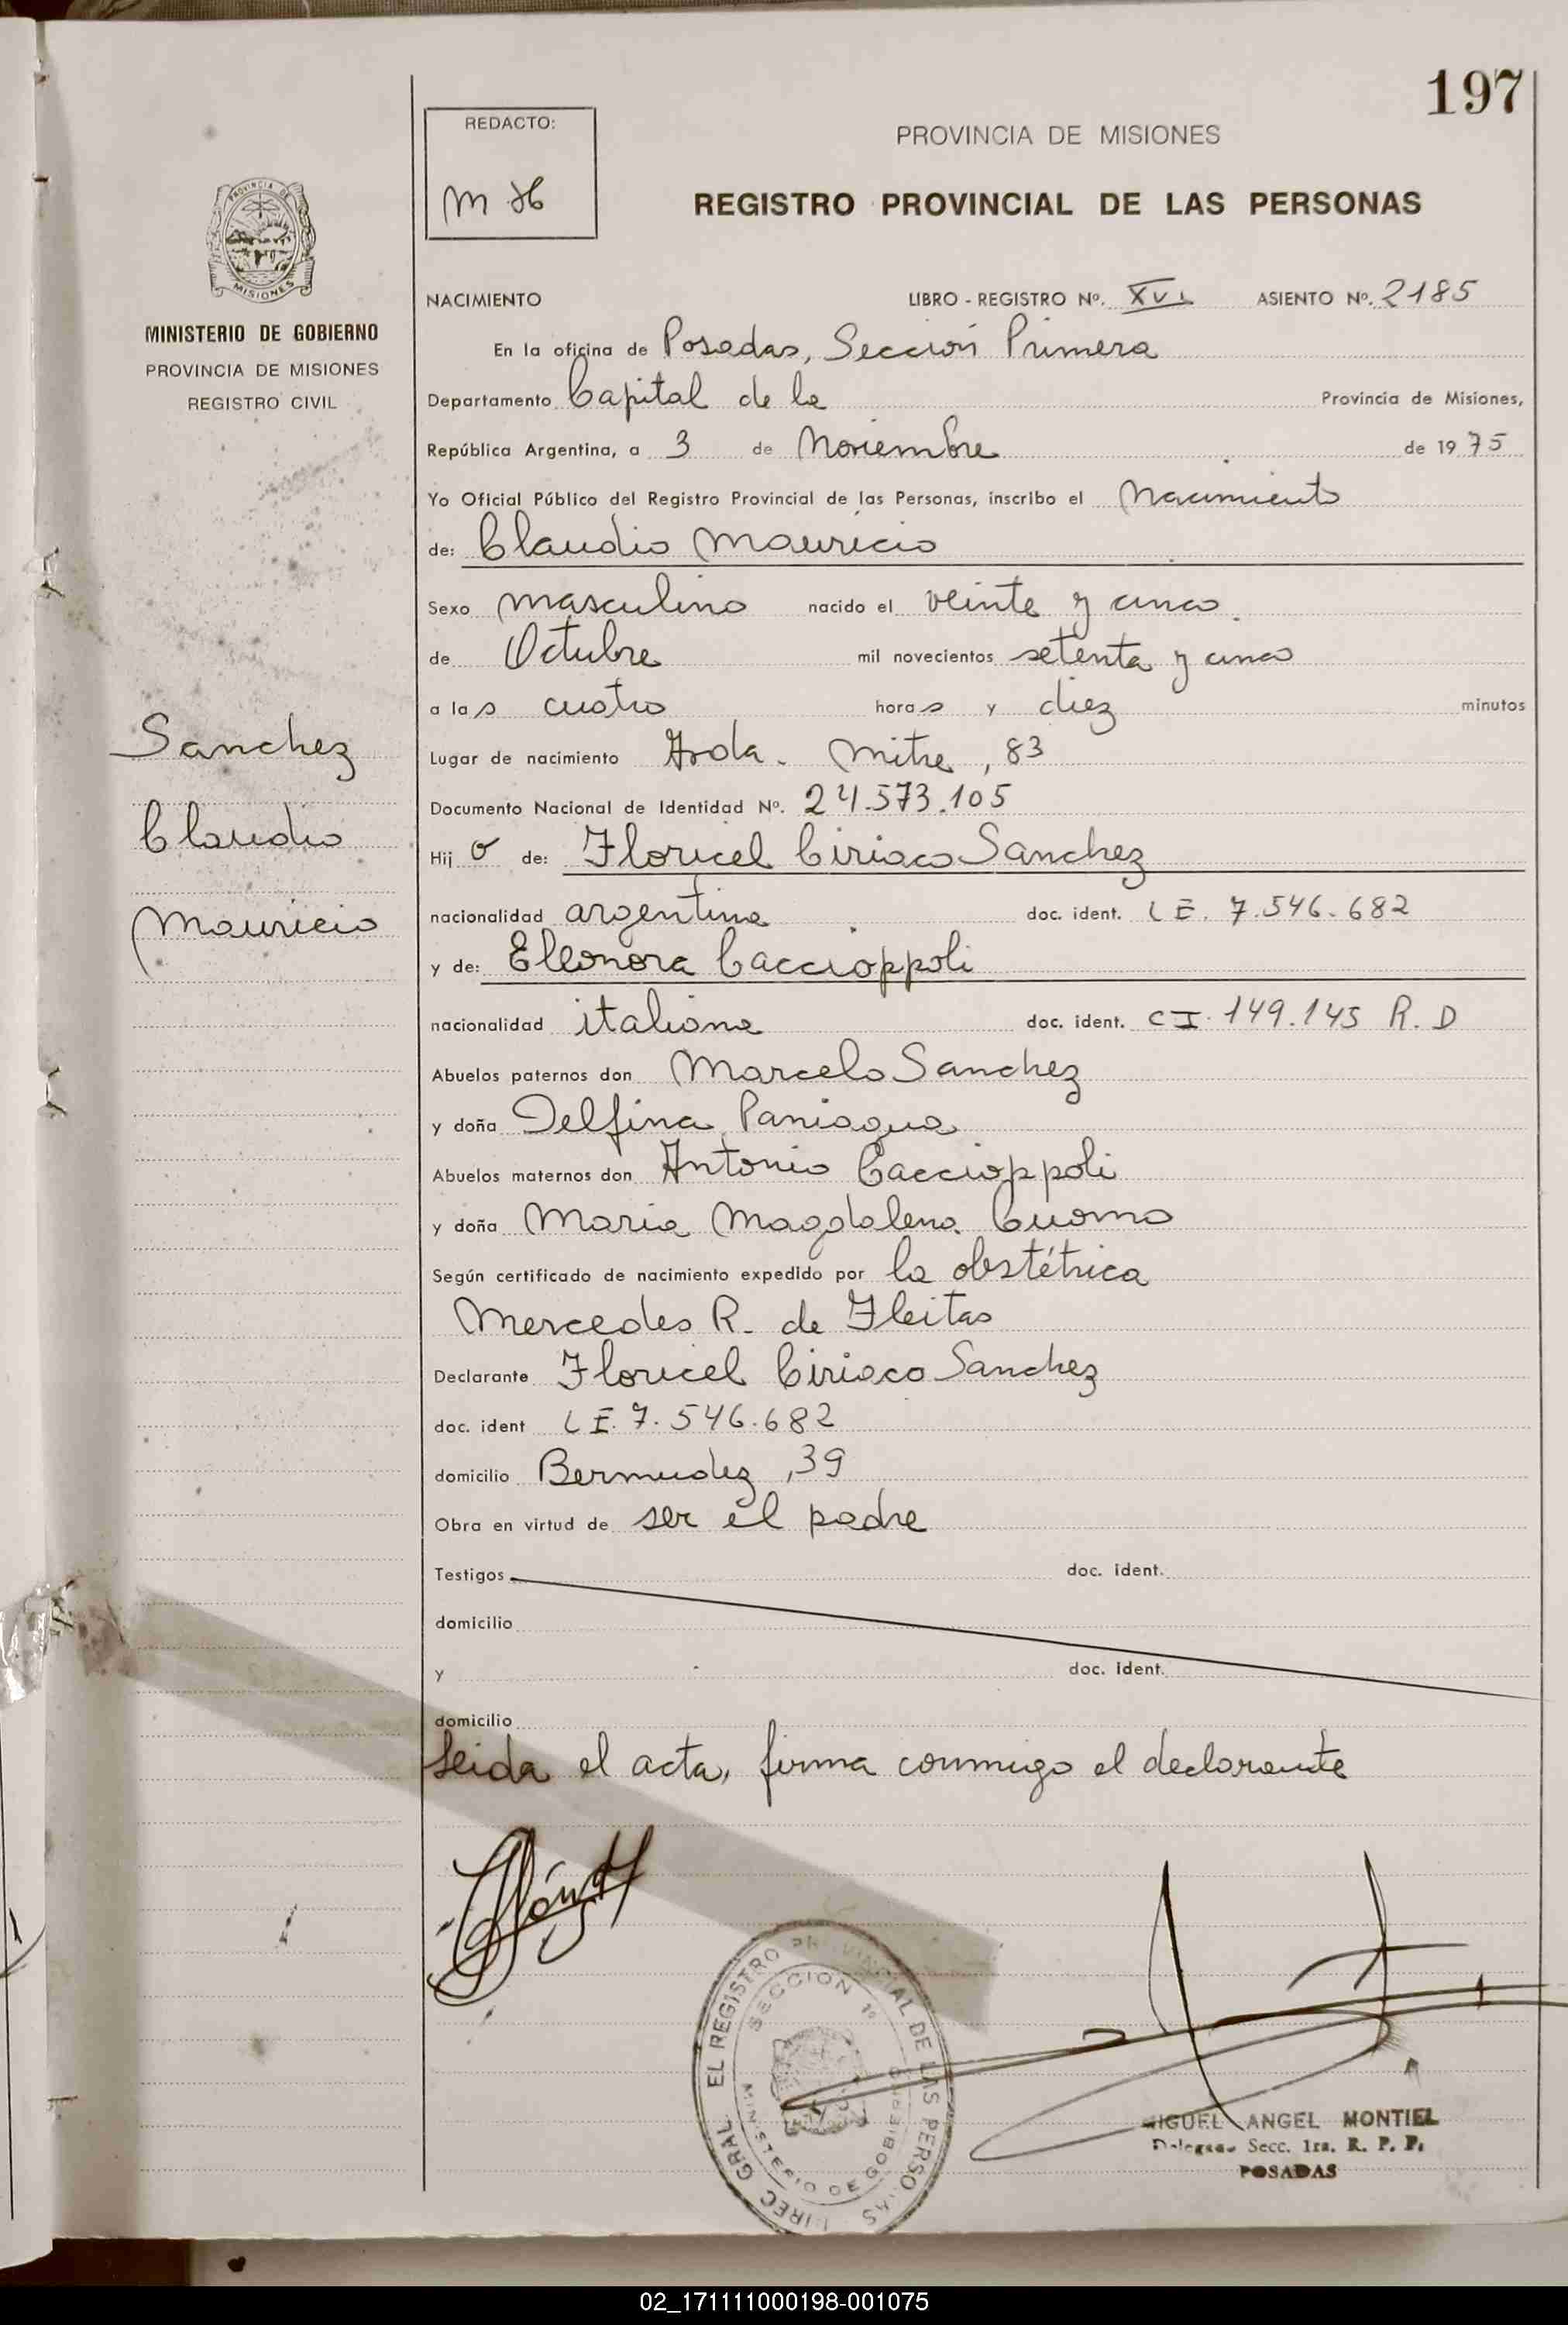 197
REDACTO:
M H
PROVINCIA DE MISIONES
REGISTRO PROVINCIAL DE LAS PERSONAS
PROVINCIA DE
MISIONES
MINISTERIO DE GOBIERNO
PROVINCIA DE MISIONES
REGISTRO CIVIL
NACIMIENTO LIBRO - REGISTRO Nº. XVI ASIENTO Nº. 2185
En la oficina de Posadas, Sección Primera
Departamento Capital de la Provincia de Misiones,
República Argentina, a 3 de Noviembre de 1975
Yo Oficial Público del Registro Provincial de las Personas, inscribo el Nacimiento
de: Claudio Mauricio
Sexo masculino nacido el veinte y cinco
de Octubre mil novecientos setenta y cinco
a las cuatro horas y diez minutos
Lugar de nacimiento Avda. Mitre, 83
Documento Nacional de Identidad Nº. 24.573.105
Hijo de: Floricel Ciriaco Sanchez
nacionalidad argentina doc. ident. LE. 7.546.682
y de: Eleonora Caccioppoli
nacionalidad italiana doc. ident. CI. 149.145 R.D
Abuelos paternos don Marcelo Sanchez
y doña Delfina Paniagua
Abuelos maternos don Antonio Caccioppoli
y doña Maria Magdalena Cuomo
Según certificado de nacimiento expedido por la obstétrica
Mercedes R. de Fleitas
Declarante Floricel Ciriaco Sanchez
doc. ident LE. 7.546.682
domicilio Bermudez, 39
Obra en virtud de ser el padre
Testigos doc. ident.
domicilio
y doc. ident.
domicilio
Leida el acta, firma conmigo el declarante
Sanchez
Claudio
Mauricio
DIREC GRAL EL REGISTRO PROVINCIAL DE LAS PERSONAS
SECCION 1ª
MINISTERIO DE GOBIERNO
MIGUEL ANGEL MONTIEL
Delegado Secc. 1ra. R. P. P.
POSADAS
02_171111000198-001075